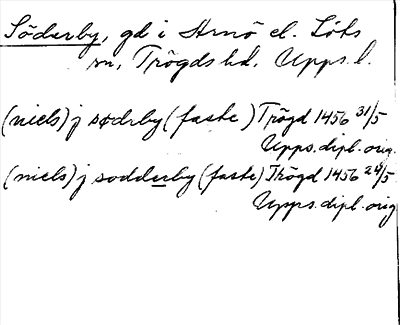 Söderby, gd i Arnö el. Löts
sn, Trögds hd, Upps. l.
(niels) j sødrby (faste) Trögd 1456 31/5
Upps. dipl. orig.
(niels) j sodderby (faste) Trögd 1456 28/5
Upps. dipl. orig